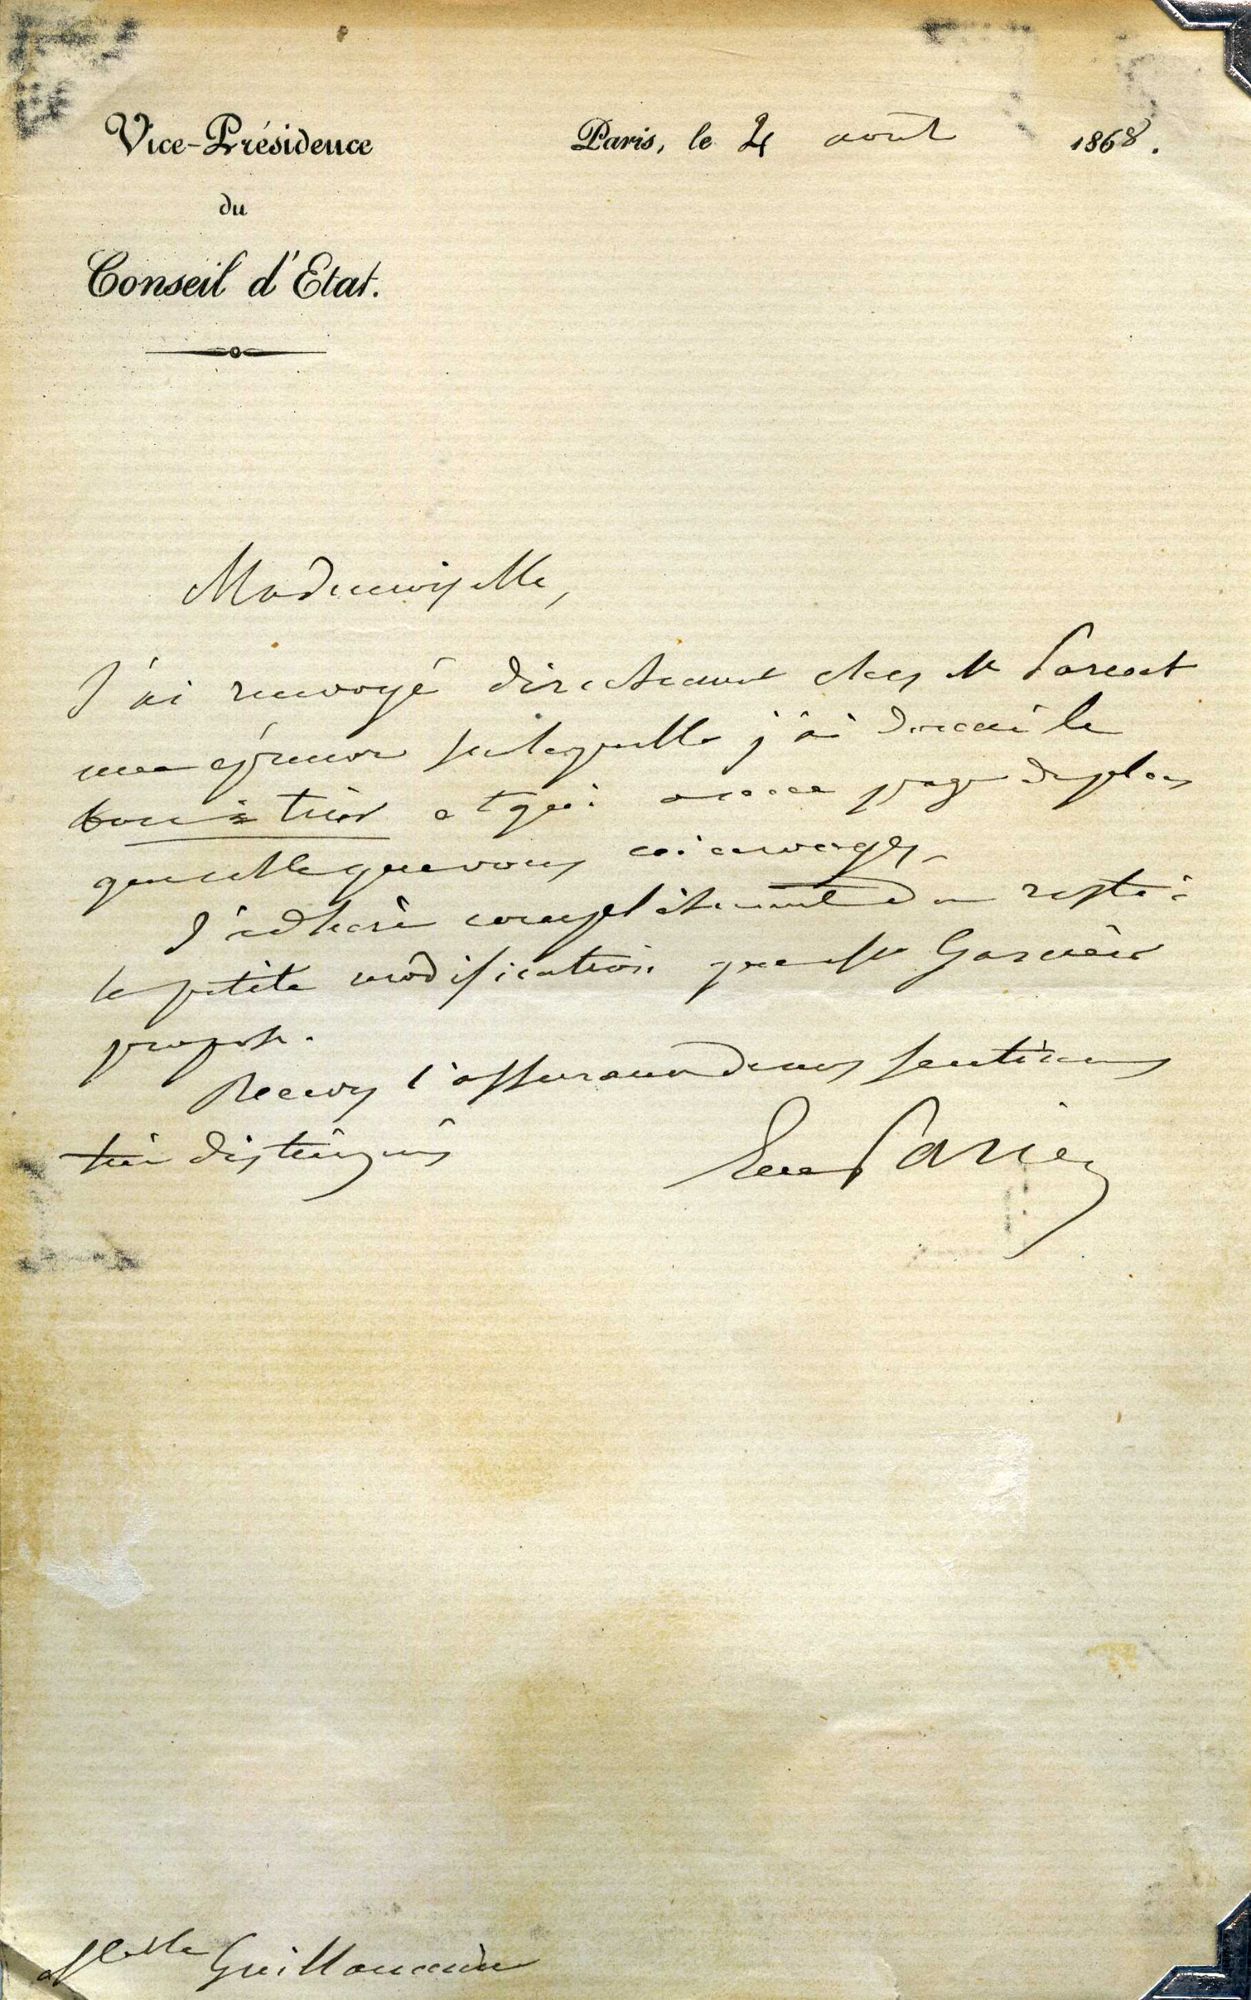 Vice-Présidence
du
Conseil d'Etat.
Paris, le 4 août 1868.
Mademoiselle,
J'ai renvoyé directement chez Mr Parent
une épreuve sur laquelle j'ai donné le
bon à tirer et qui a une page de plus
que celle que vous m'envoyez.
J'adhère complètement du reste à
la petite modification que Mr Garnier
propose.
Recevez l'assurance de mes sentimens
très distingués
E de Parieu
Melle Guillaumin